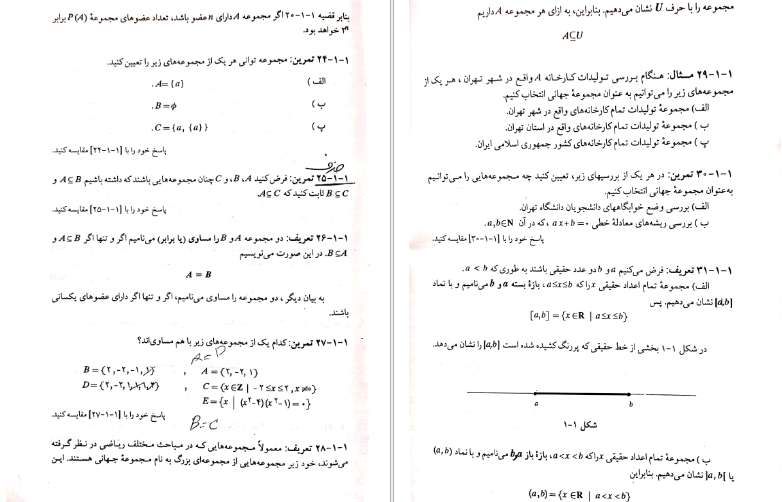 بنابر قضیه ۱-۱-۲۰ اگر مجموعه A دارای n عضو باشد، تعداد عضوهای مجموعهٔ P (A) برابر
۲ⁿ خواهد بود.
۱-۱-۲۴ تمرین: مجموعه توانی هر یک از مجموعه‌های زیر را تعیین کنید.
الف) A= {a} .
ب) B=φ .
پ) C={a, {a}} .
پاسخ خود را با [۱-۱-۲۴] مقایسه کنید.
حذف
۱-۱-۲۵ تمرین: فرض کنید A، B، و C چنان مجموعه‌هایی باشند که داشته باشیم A⊆B و
B⊆C ثابت کنید که A⊆C.
پاسخ خود را با [۱-۱-۲۵] مقایسه کنید.
۱-۱-۲۶ تعریف: دو مجموعه A و B را مساوی (یا برابر) می‌نامیم اگر و تنها اگر A⊆B و
B⊆A. در این صورت می‌نویسیم
A = B
به بیان دیگر، دو مجموعه را مساوی می‌نامیم، اگر و تنها اگر دارای عضوهای یکسانی
باشند.
۱-۱-۲۷ تمرین: کدام یک از مجموعه‌های زیر با هم مساوی‌اند؟
A=D
B={۲,-۲,-۱,۱} , A={۲,-۲,۱}
D={۲,-۲,۱,۱,۲} , C={x∈Z | -۲≤x≤۲, x≠۰}
E={x | (x²-۴)(x²-۱)=۰}
پاسخ خود را با [۱-۱-۲۷] مقایسه کنید.
B=C
۱-۱-۲۸ تعریف: معمولاً مجموعه‌هایی که در مباحث مختلف ریاضی در نظر گرفته
می‌شوند، خود زیر مجموعه‌هایی از مجموعه‌ای بزرگ به نام مجموعهٔ جهانی هستند. این
مجموعه را با حرف U نشان می‌دهیم. بنابراین، به ازای هر مجموعه A داریم
A⊆U
۱-۱-۲۹ مثال: هنگام بررسی تولیدات کارخانه A واقع در شهر تهران، هر یک از
مجموعه‌های زیر را می‌توانیم به عنوان مجموعهٔ جهانی انتخاب کنیم.
الف) مجموعهٔ تولیدات تمام کارخانه‌های واقع در شهر تهران.
ب) مجموعهٔ تولیدات تمام کارخانه‌های واقع در استان تهران.
پ) مجموعهٔ تولیدات تمام کارخانه‌های کشور جمهوری اسلامی ایران.
۱-۱-۳۰ تمرین: در هر یک از بررسیهای زیر، تعیین کنید چه مجموعه‌هایی را می‌توانیم
به‌عنوان مجموعهٔ جهانی انتخاب کنیم.
الف) بررسی وضع خوابگاههای دانشجویان دانشگاه تهران.
ب) بررسی ریشه‌های معادلهٔ خطی ax+b=۰، که در آن a,b∈N.
پاسخ خود را با [۱-۱-۳۰] مقایسه کنید.
۱-۱-۳۱ تعریف: فرض می‌کنیم a و b دو عدد حقیقی باشند به طوری که a < b.
الف) مجموعهٔ تمام اعداد حقیقی x را که a≤x≤b، بازهٔ بسته a و b می‌نامیم و با نماد
[a,b] نشان می‌دهیم. پس
[a,b] = {x∈R | a≤x≤b}
در شکل ۱-۱ بخشی از خط حقیقی که پررنگ کشیده شده است [a,b] را نشان می‌دهد.
a b
شکل ۱-۱
ب) مجموعهٔ تمام اعداد حقیقی x را که a<x<b، بازهٔ باز a و b می‌نامیم و با نماد (a,b)
یا ]a,b[ نشان می‌دهیم. بنابراین
(a,b) = {x∈R | a<x<b}